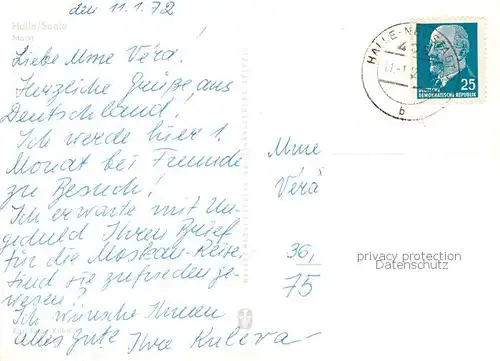 den 11.1.72
Halle/Saale
Markt
Liebe Mme Véra!
Herzliche Grüße aus
Deutschland!
Ich werde hier 1.
Monat bei Freunde
zu Besuch!
Ich erwarte mit Un-
geduld Ihren Brief
für die Moskau-Reise.
Sind sie zufrieden ge-
wesen?
Ich wünsche Ihnen
alles gute Ihre Kuleva
HALLE-NEUSTADT
b
25
DEUTSCHE
DEMOKRATISCHE REPUBLIK
Mme
Véra
36,
75
privacy protection
Datenschutz